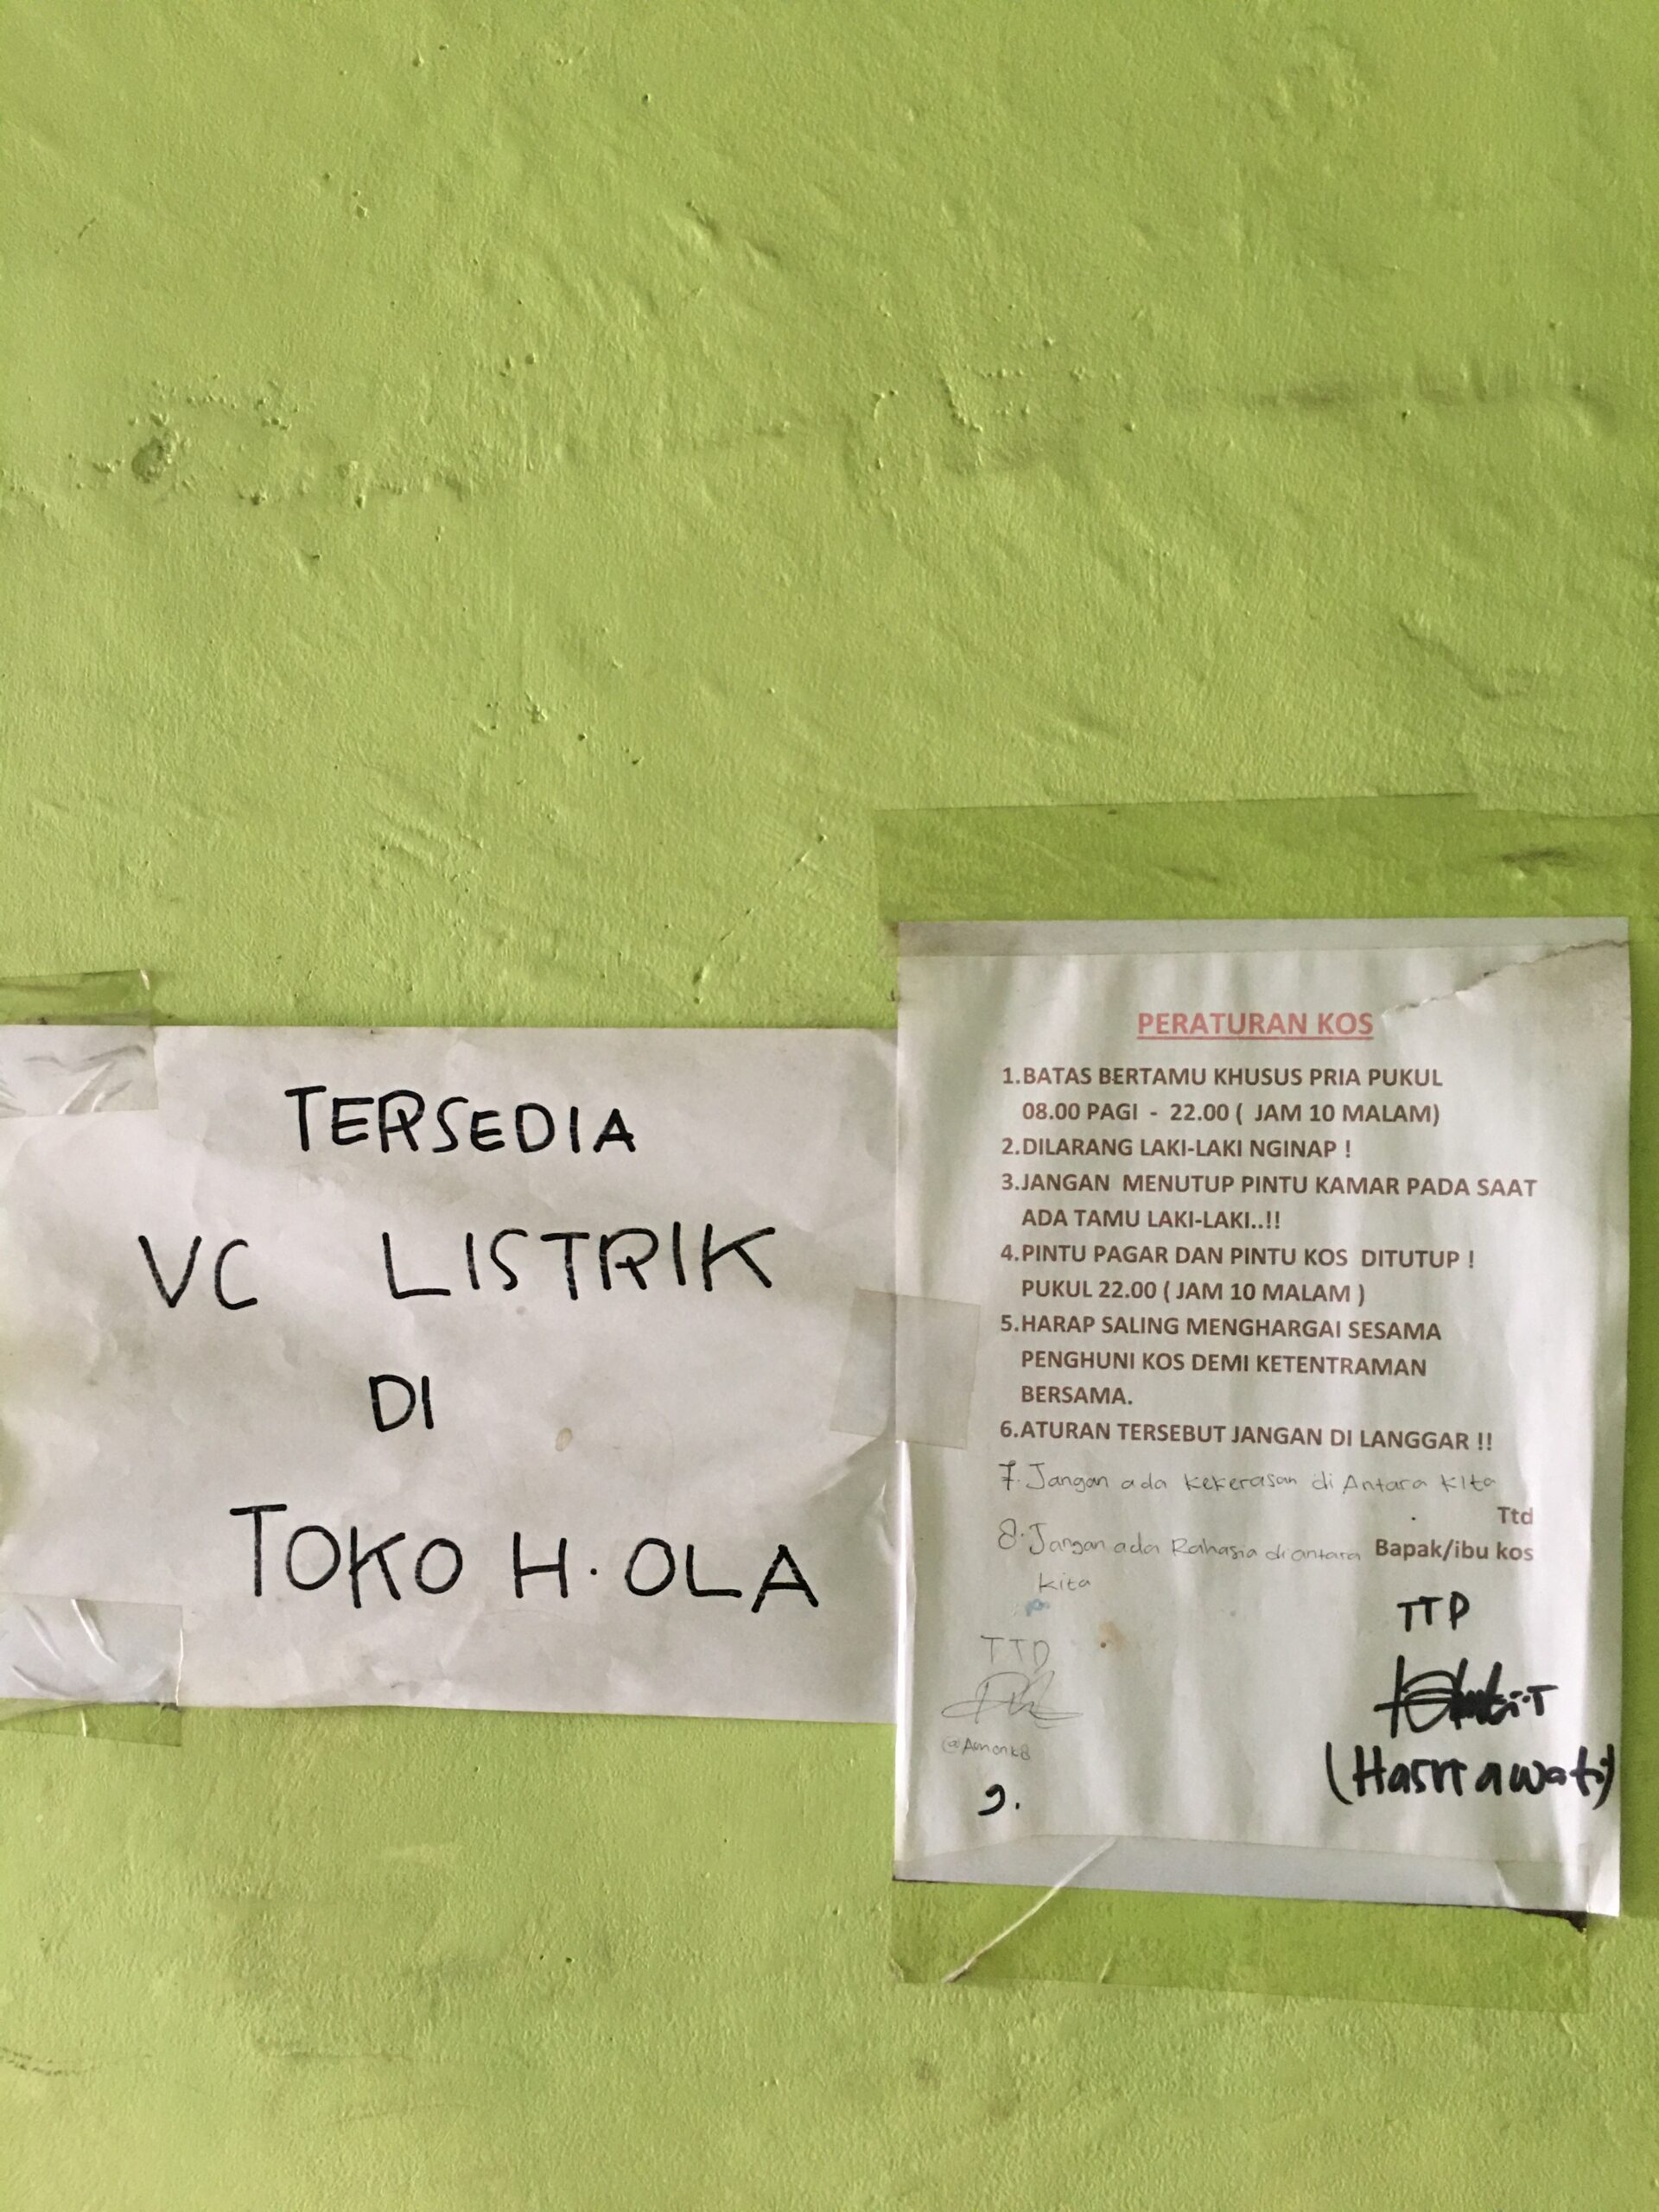 TERSEDIA
VC LISTRIK
DI
TOKO H. OLA
PERATURAN KOS
1.BATAS BERTAMU KHUSUS PRIA PUKUL
08.00 PAGI - 22.00 ( JAM 10 MALAM)
2.DILARANG LAKI-LAKI NGINAP !
3.JANGAN MENUTUP PINTU KAMAR PADA SAAT
ADA TAMU LAKI-LAKI..!!
4.PINTU PAGAR DAN PINTU KOS DITUTUP !
PUKUL 22.00 ( JAM 10 MALAM )
5.HARAP SALING MENGHARGAI SESAMA
PENGHUNI KOS DEMI KETENTRAMAN
BERSAMA.
6.ATURAN TERSEBUT JANGAN DI LANGGAR !!
7. Jangan ada kekerasan di Antara kita
Ttd
8. Jangan ada Rahasia diantara
kita
Bapak/ibu kos
TTP
TTD
(Hasriawati)
9.